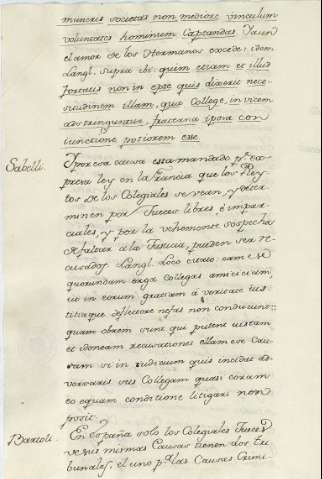 muneris societas non mediocre vinculum
voluntates hominum captandas. Y aun
el amor de los Hermanos excede: idem
Langl. supra ibi: quim etiam et illud
forensis non in epte quis dixerit nece-
situdinem illam, que College, in vicem
adstringuntur, fraterna ipsra con
iunctione potiorem esse.
Sabelli. Y por esa causa esta mandado pr. ex-
presa ley en la Francia que los Pley-
tos de los Colegiales se vean, y deter-
minen por Jueces libres, è impar-
ciales, y por la vehemente sospecha
de faltar à la Justicia, pueden ser re-
cusados Langl. Loco citato: eam et
quorundam erga collegas amicitiam,
ut in eorum gratiam à veritate ius-
titiaque deflectere nefas non conducunt:
quam obrem sunt qui putent iustam
et idoneam recusationes illam ese cau-
sam si in iudicium quis incidat ad-
versarius sui Collegam quasi coram
eo equam conditione litigari non
posit.
Barzoli. En España solo los Colegiales Jueces
de sus mismas Causas tienen dos tri-
bunales, el uno pa. las Causas Crimi-